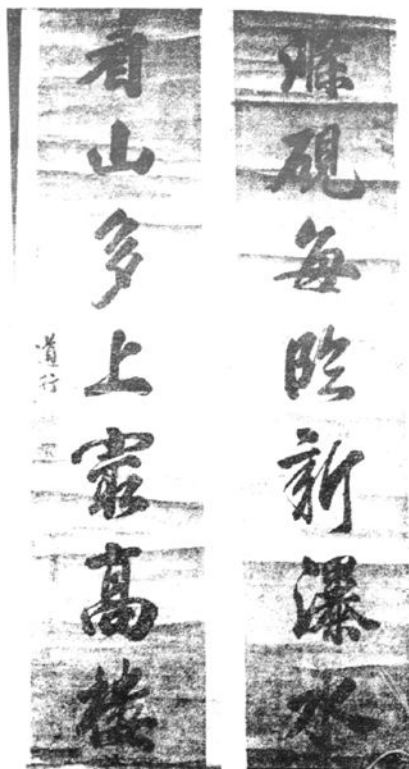 滌硯每臨新瀑水
看山多上最高樓
道行